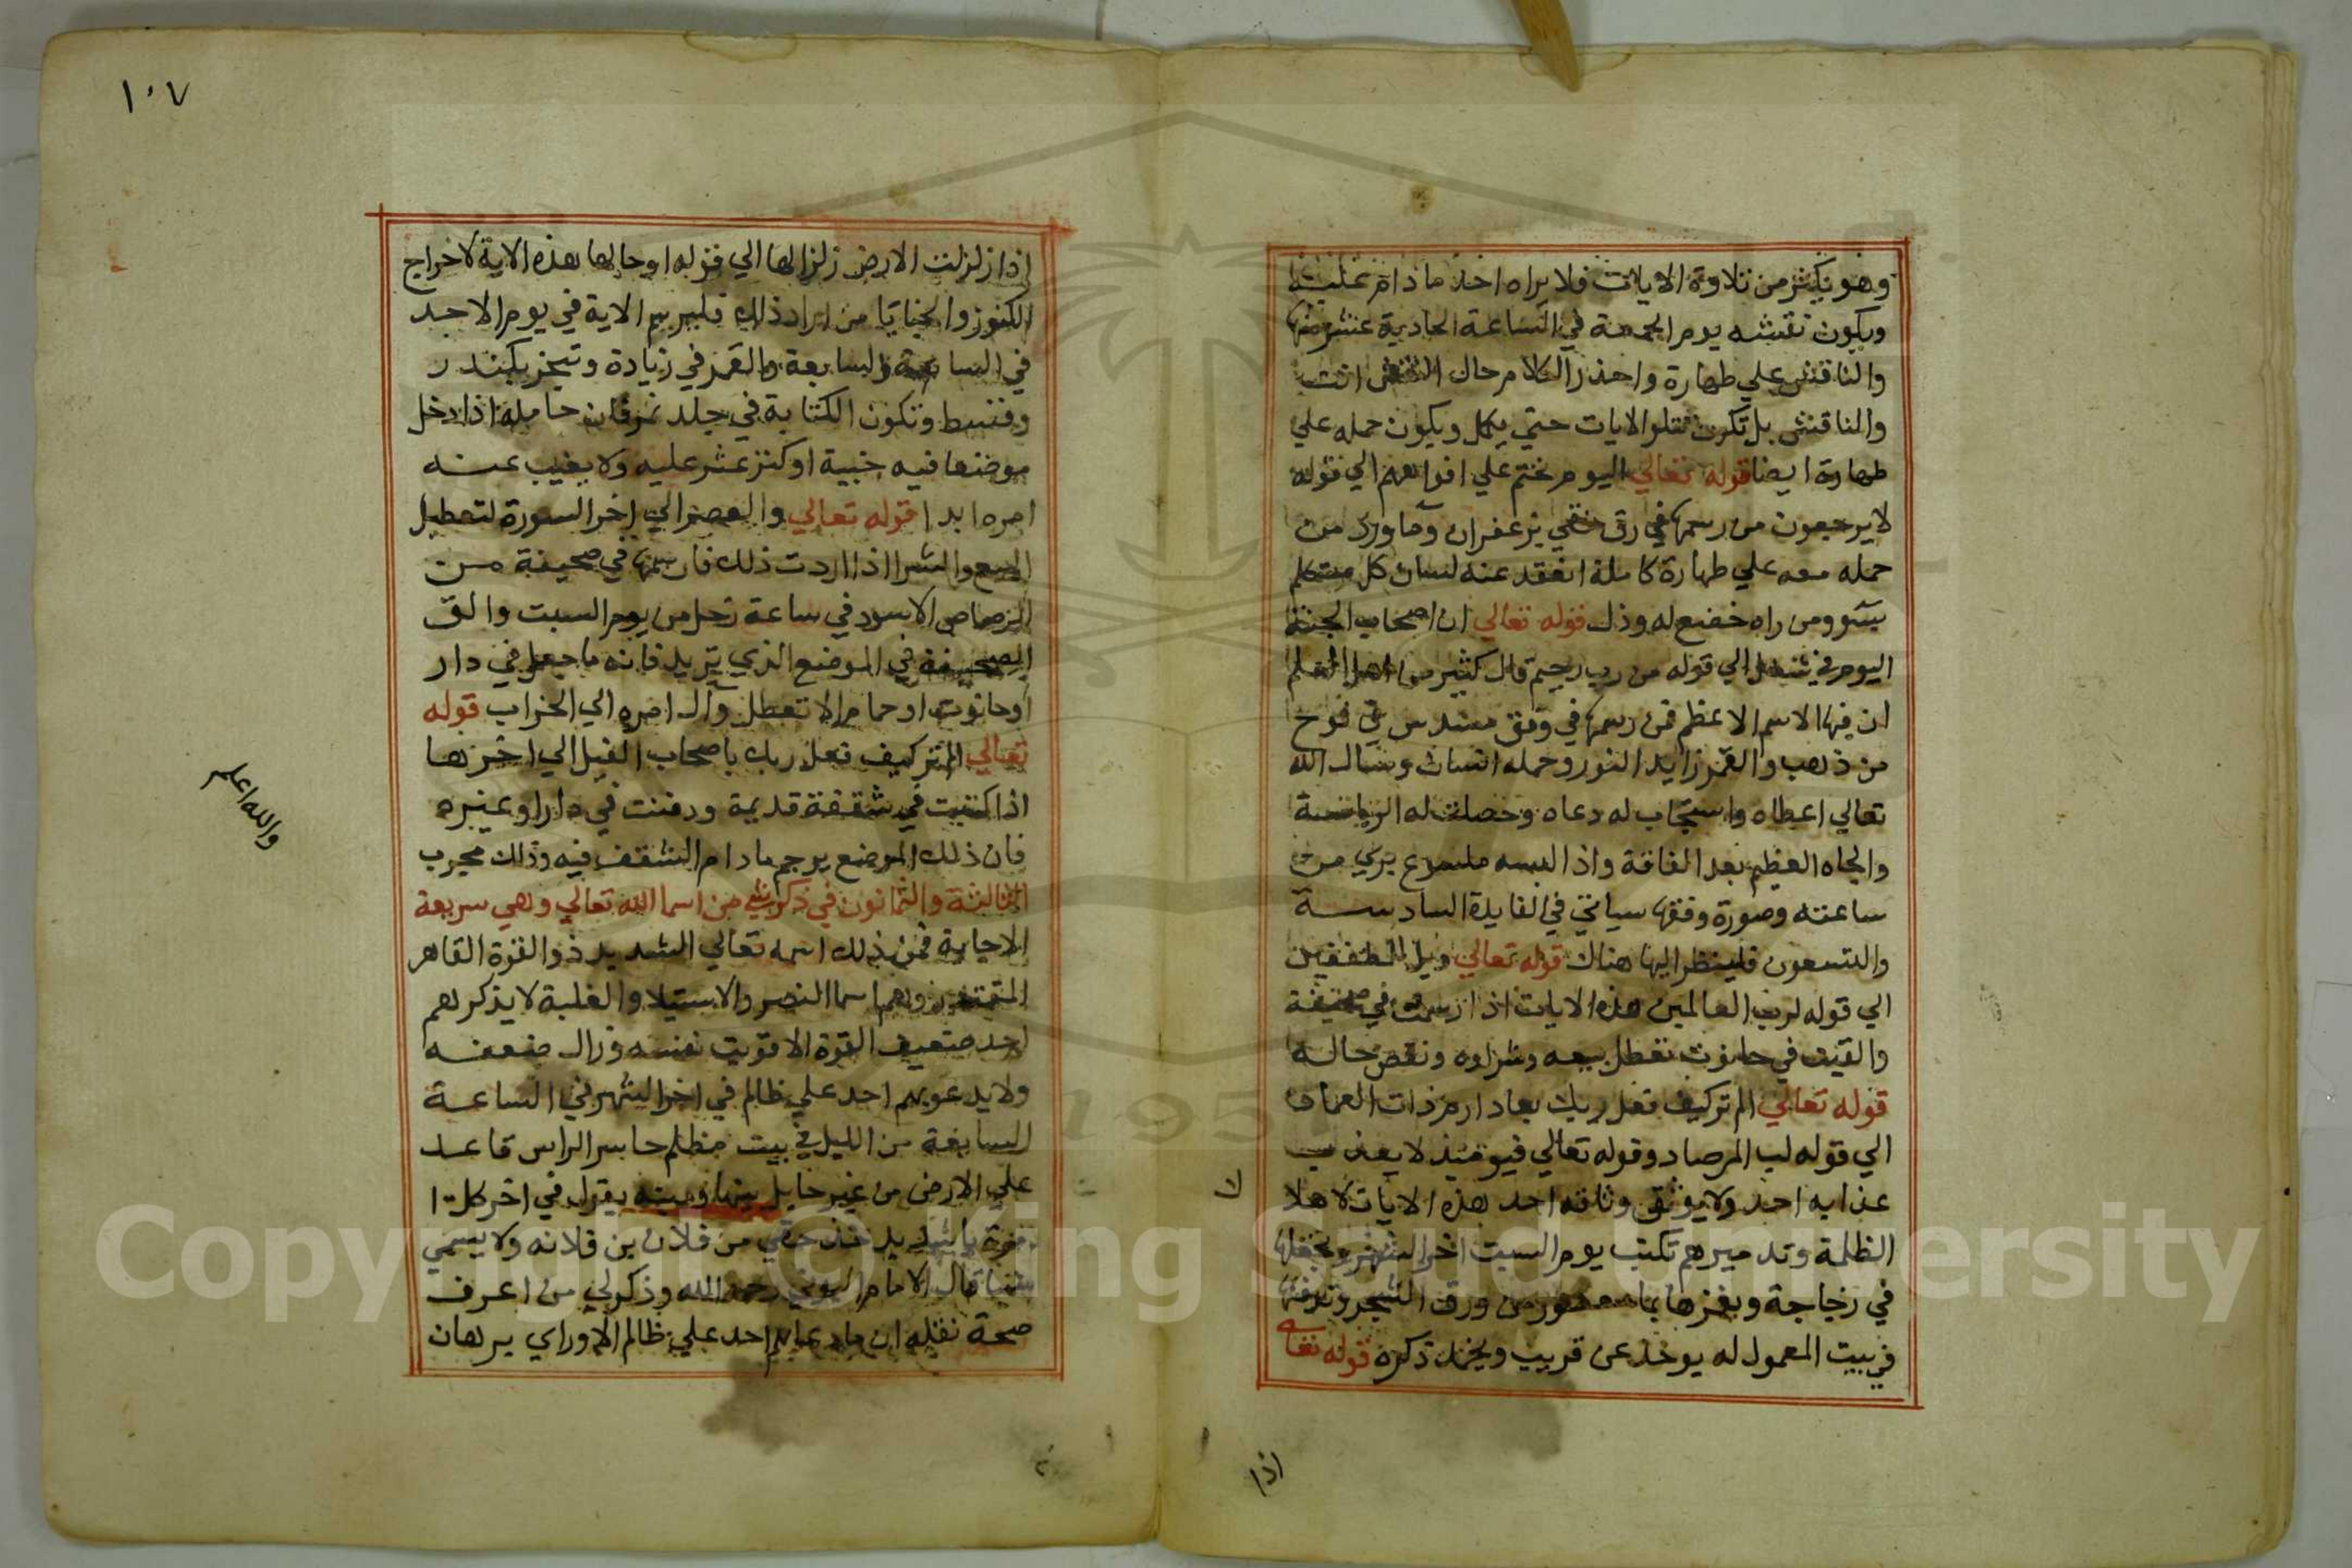 وهو يكثر من تلاوة الايات فلا يراه احد ما دام عليه
ويكون نقشه يوم الجمعة في الساعة الحادية عشر منها
والناقش علي طهارة واحذر الكلام حال النقش انت
والناقش بل تكون تتلو الايات حتي يكمل ويكون حمله علي
طهارة ايضا قوله تعالي اليوم نختم علي افواههم الي قوله
لا يرجعون من رسمها في رق نقي بزعفران وما ورد من
حمله معه علي طهارة كاملة انعقد عنه لسان كل متكلم
بسو ومن راه خضع له وذل قوله تعالي ان اصحاب الجنة
اليوم في شغل الي قوله من رب رحيم قال كثير من اهل العلم
ان فيها الاسم الاعظم فمن رسمها في وفق مسدس في لوح
من ذهب والقمر زايد النور وحمله انسان وسال الله
تعالي اعطاه واستجاب له دعاه وحصلت له الرياسة
والجاه العظيم بعد الفاقة واذا لبسه ملسوع بري من
ساعته وصورة وفقها سياتي في الفايدة السادسة
والتسعون فلينظر اليها هناك قوله تعالي ويل للمطففين
الي قوله لرب العالمين هذه الايات اذا رسمت في صحيفة
والقيت في حانوت تعطل بيعه وشراوه ونقص حاله
قوله تعالي الم تر كيف فعل ربك بعاد ارم ذات العماد
الي قوله لب المرصاد وقوله تعالي فيومئذ لا يعذب
عذابه احد ولا يوثق وثاقه احد هذه الايات لاهلا
الظلمة وتدميرهم تكتب يوم السبت اخر الشهر وتجعلها
في زجاجة وبغرها بما معصور من ورق الشجر وتدفنها
في بيت المعمول له يوخذ عن قريب ويخمد ذكره قوله تعا
لا
اذا
١٠٧
اذا زلزلت الارض زلزالها الي قوله اوحا لها هذه الاية لاخراج
الكنوز والخبايا من اراد ذلك فليرسم الاية في يوم الاحد
في الساعة السابعة والقمر في زيادة وتبخر بكندر
وقسط وتكون الكتابة في جلد نمر فان حامله اذا دخل
موضعا فيه خبية او كنز عثر عليه ولا يغيب عنه
امره ابدا قوله تعالي والعصر الي اخر السورة لتعطيل
البيع والشرا اذا اردت ذلك فارسمها في صحيفة من
الرصاص الاسود في ساعة زحل من يوم السبت والق
الصحيفة في الموضع الذي تريد فانه ما جعل في دار
او حانوت او حمام الا تعطل وآل امره الي الخراب قوله
تعالي الم تر كيف فعل ربك باصحاب الفيل الي اخرها
اذا كتبت في شقفة قديمة ودفنت في دار او غيره
فان ذلك الموضع يرجم مادام الشقف فيه وذلك مجرب
والله اعلم
الثالثة والثمانون في ذكر شي من اسما الله تعالي وهي سريعة
الاجابة فمن ذلك اسمه تعالي الشديد ذو القوة القاهر
المقتدر وهم اسما النصر والاستيلا والغلبة لا يذكرهم
احد ضعيف القوة الا قويت نفسه وزال ضعفه
ولا يدعو بهم احد علي ظالم في اخر الشهر في الساعة
السابعة من الليل في بيت مظلم حاسر الراس قاعد
علي الارض من غير حايل بينها وبينه يقول في اخر كل
مرة يا شديد خذ حقي من فلان بن فلانه ولا يسمي
شيا قال الامام البوني رحمه الله وذكر لي من اعرف
صحة نقله ان ما دعا بهم احد علي ظالم الا وراي برهان
Copyright © King Saud University
1957